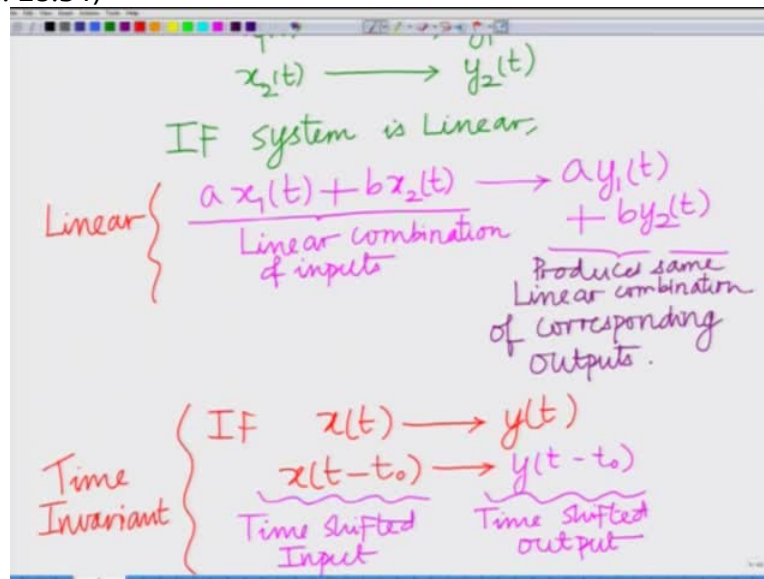 x₂(t) ⟶ y₂(t)
IF system is Linear,
Linear { a x₁(t) + b x₂(t) ⟶ a y₁(t)
+ b y₂(t)
Linear combination
of inputs
Produces same
Linear combination
of corresponding
outputs.
IF x(t) ⟶ y(t)
Time
Invariant { x(t-t₀) ⟶ y(t-t₀)
Time Shifted
Input
Time Shifted
output